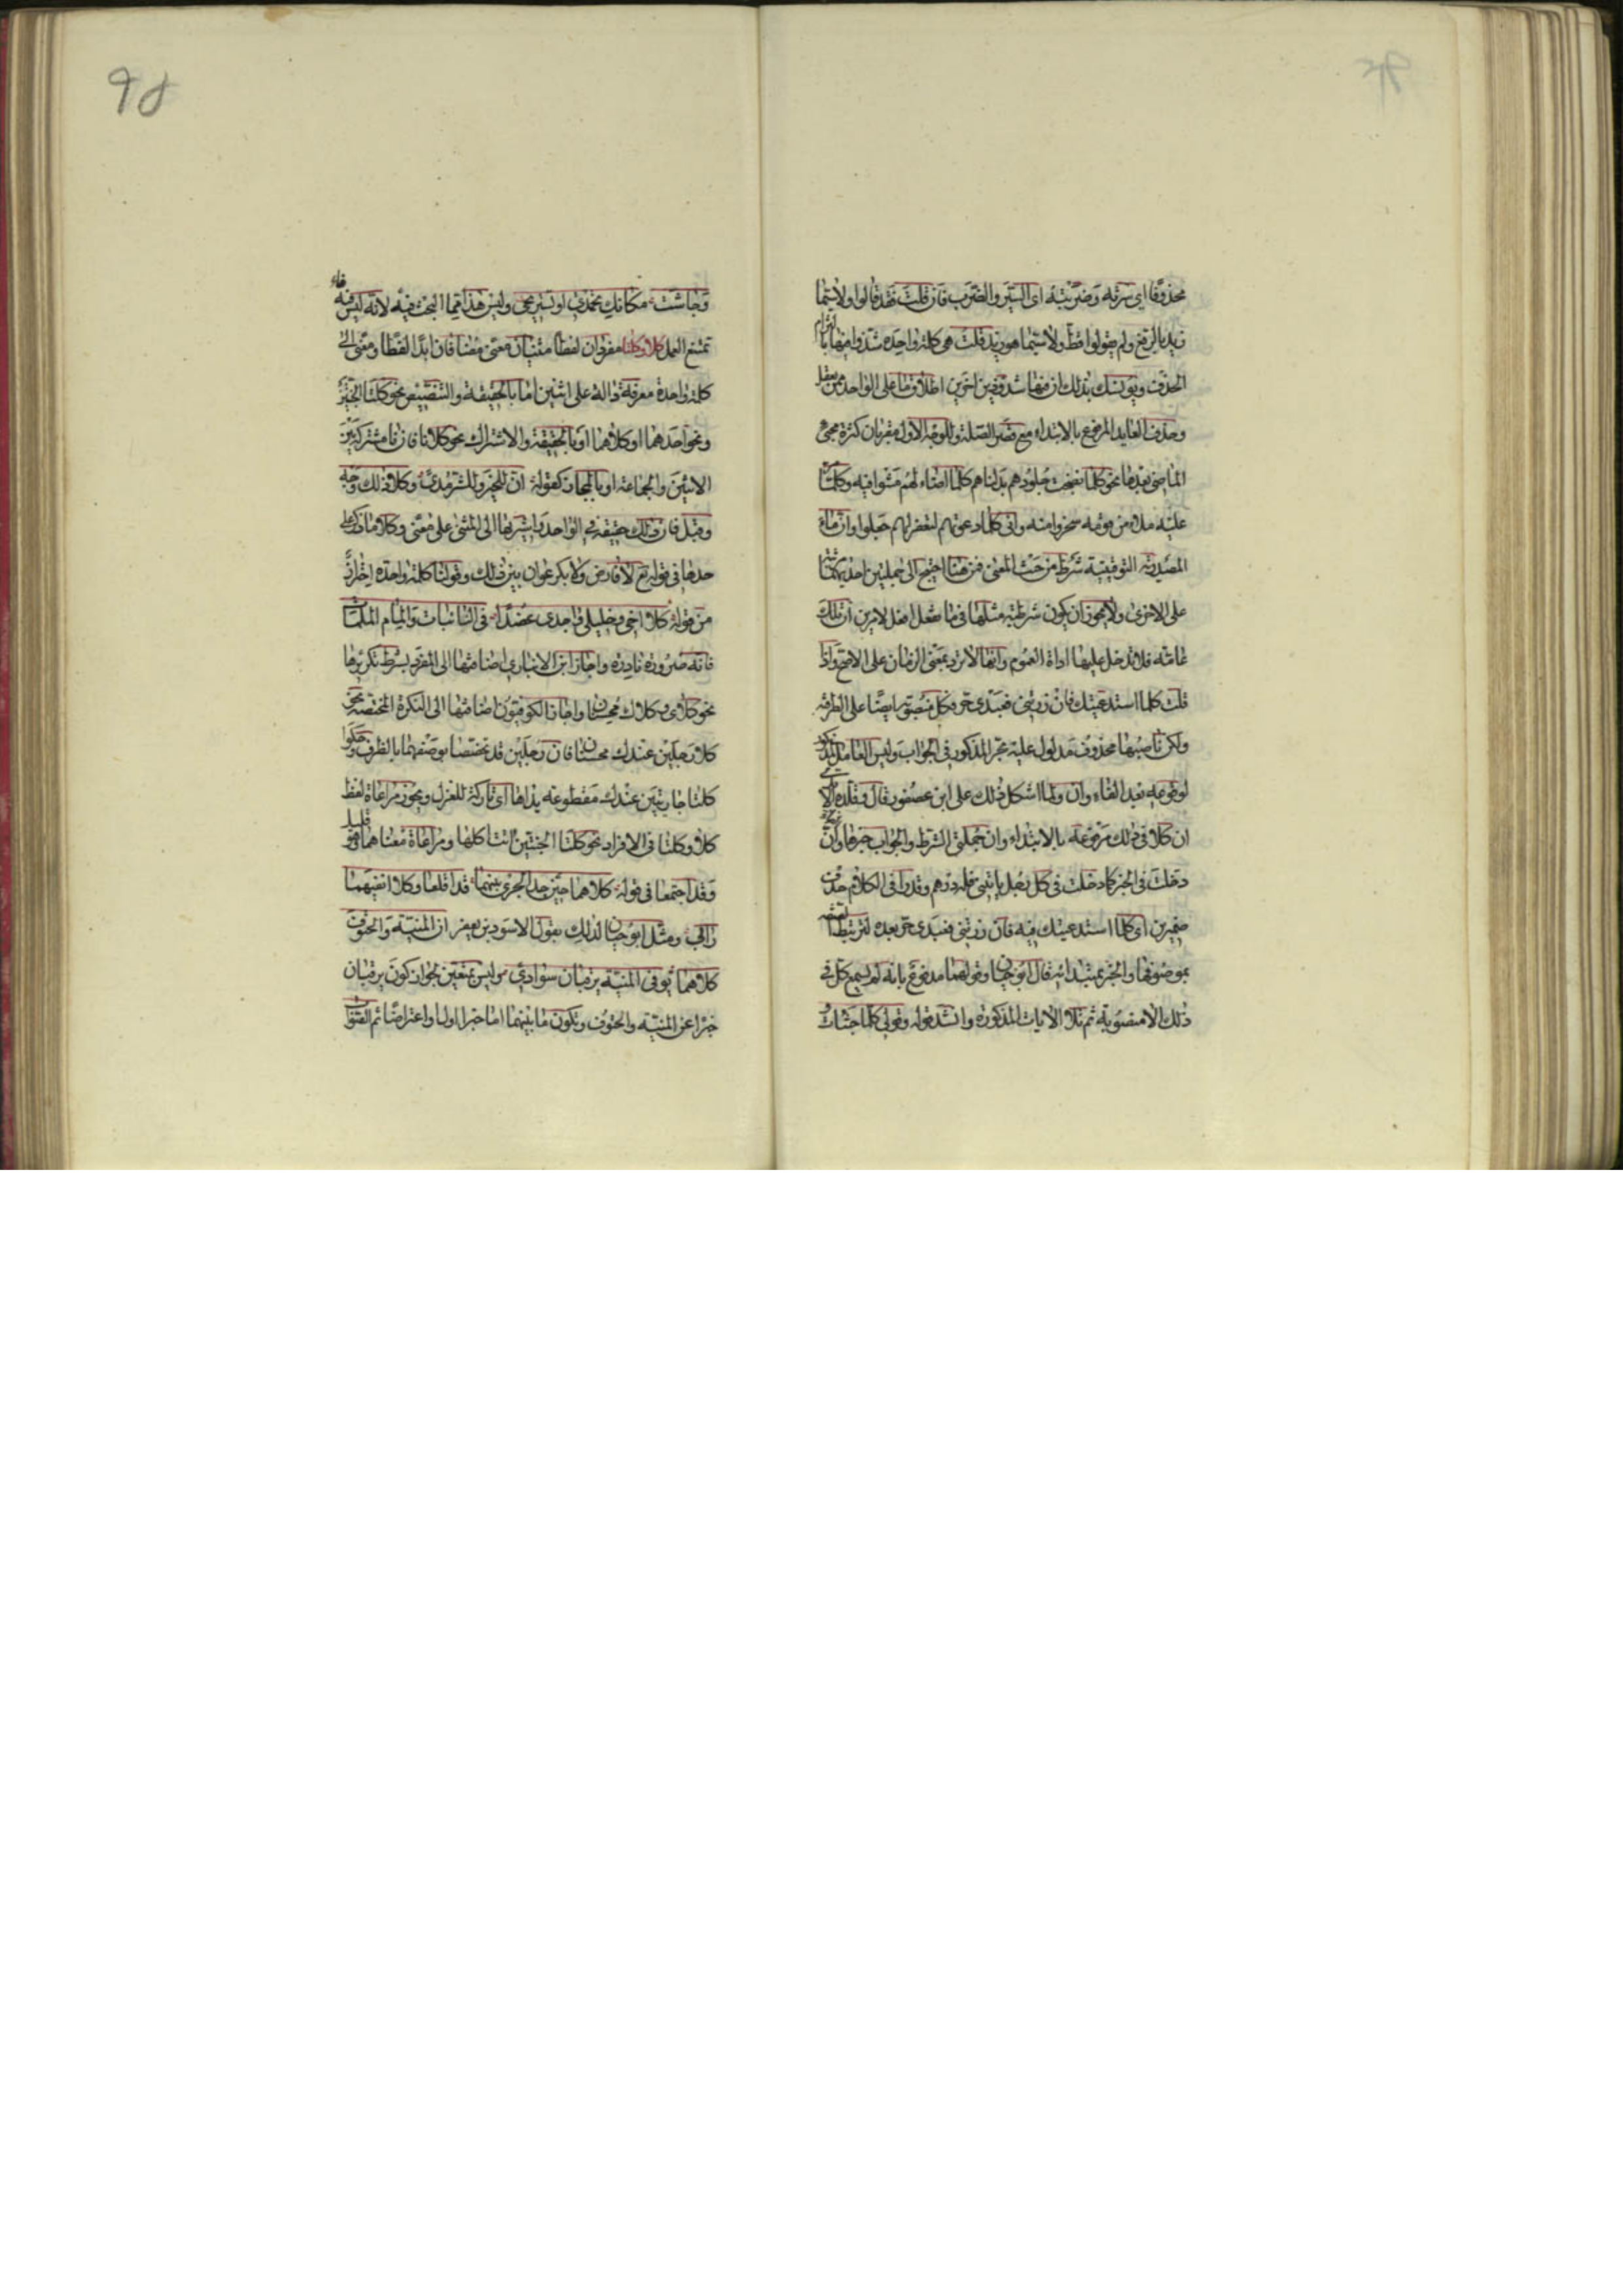 محذوفا اي سرته وضربته اى السير والضرب فان قلت فقد قالوا ولاسيما
زيد بالرفع ولم يقولوا قط ولاسيما هو زيد قلت هى كلمة واحدة شذوا فيها بالتزام
الحذف ويونسك بذلك ان فيها شذوذين اخرين اطلاق ما على الواحد ممن يعقل
وحذف العايد المرفوع بالابتداء مع قصر الصلة وللوجه الاول مقربان كثرة مجئ
الماضى بعدها نحو كلما نضجت جلودهم بدلناهم كلما اضاء لهم مشوا فيه وكلما مر
عليه ملاء من قومه سخروا منه وانى كلما دعوتهم لتغفر لهم جعلوا وان ما
المصدرية التوقيتية شرط من حيث المعنى فمن هنا احتيج الى جملتين احديهما مرتبة
على الاخرى ولا يجوز ان يكون شرطية مثلها فى ما تفعل افعل لامرين ان تلك
عامة فلا تدخل عليها اداة العموم وانها لا ترد بمعنى الزمان على الاصح واذا
قلت كلما استدعيتك فان زرتنى فعبدى حر فكل منصوبة ايضا على الظرفية
ولكن ناصبها محذوف مدلول عليه بحر المذكور فى الجواب وليس العامل المذكور
لوقوعه بعد الفاء وان ولما اشكل ذلك على ابن عصفور قال وقلده الابدى
ان كلا فى ذلك مرفوعة بالابتداء وان جملتى الشرط والجواب خبرها وان الفاء
دخلت فى الخبر كما دخلت فى كل رجل ياتينى فله درهم وقدرا فى الكلام حذف
ضميرين اى كلما استدعيتك فيه فان زرتنى فعبدى حر بعده لترتبط الصفة
بموصوفها والخبر بمبتدائه قال ابو حيان وقولهما مدفوع بانه لم يسمع كل فى
ذلك الا منصوبة ثم تلا الايات المذكورة وانشد قوله وقولى كلما جشات
وجاشت مكانك تحمدى او تستريحى وليس هذا مما البحث فيه لانه ليس فيه فاء
تمنع العمل كلا وكلتا مفردان لفظا مثنيان معنى مضافان ابدا لفظا ومعنى الى
كلمة واحدة معرفة دالة على اثنين اما بالحقيقة والتنصيص نحو كلتا الجنتين
ونحو احدهما او كلاهما او بالحقيقة والاشتراك نحو كلانا فان نا مشتركة بين
الاثنين والجماعة او بالمجاز كقوله ان للخير وللشر مدى وكلا ذلك وجه
وقبل فان ذلك حقيقة فى الواحد واشير بها الى المثنى على معنى وكلا ما ذكر على
حدها فى قوله تع لا فارض ولا بكر عوان بين ذلك وقولنا كلمة واحدة احترازا
من قوله كلا اخى وخليلى واجدى عضدا فى النائبات والمام الملمات
فانه ضرورة نادرة واجاز ابن الانبارى اضافتها الى المفرد بشرط تكريرها
نحو كلاى وكلاك محسنان واجاز الكوفيون اضافتها الى النكرة المختصة نحو
كلا رجلين عندك محسنان فان رجلين قد تخصصا بوصفهما بالظرف وحكوا
كلتا جاريتين عندك مقطوعة يداها اى تاركة للغزل ويجوز مراعاة لفظ
كلا وكلتا فى الافراد نحو كلتا الجنتين اتت اكلها ومراعاة معناهما وهو قليل
وقد اجتمعا فى قوله كلاهما حين جد الجرى بينهما قد اقلعا وكلا انفيهما
رابى ومثل ابو حيان لذلك بقول الاسود بن يعفر ان المنية والحتوف
كلاهما يوفى المنية يرقبان سوادى وليس بمتعين لجواز كون يرقبان
خبرا عن المنية والحتوف ويكون ما بينهما اما خبرا اولا واعتراضا ثم الصواب